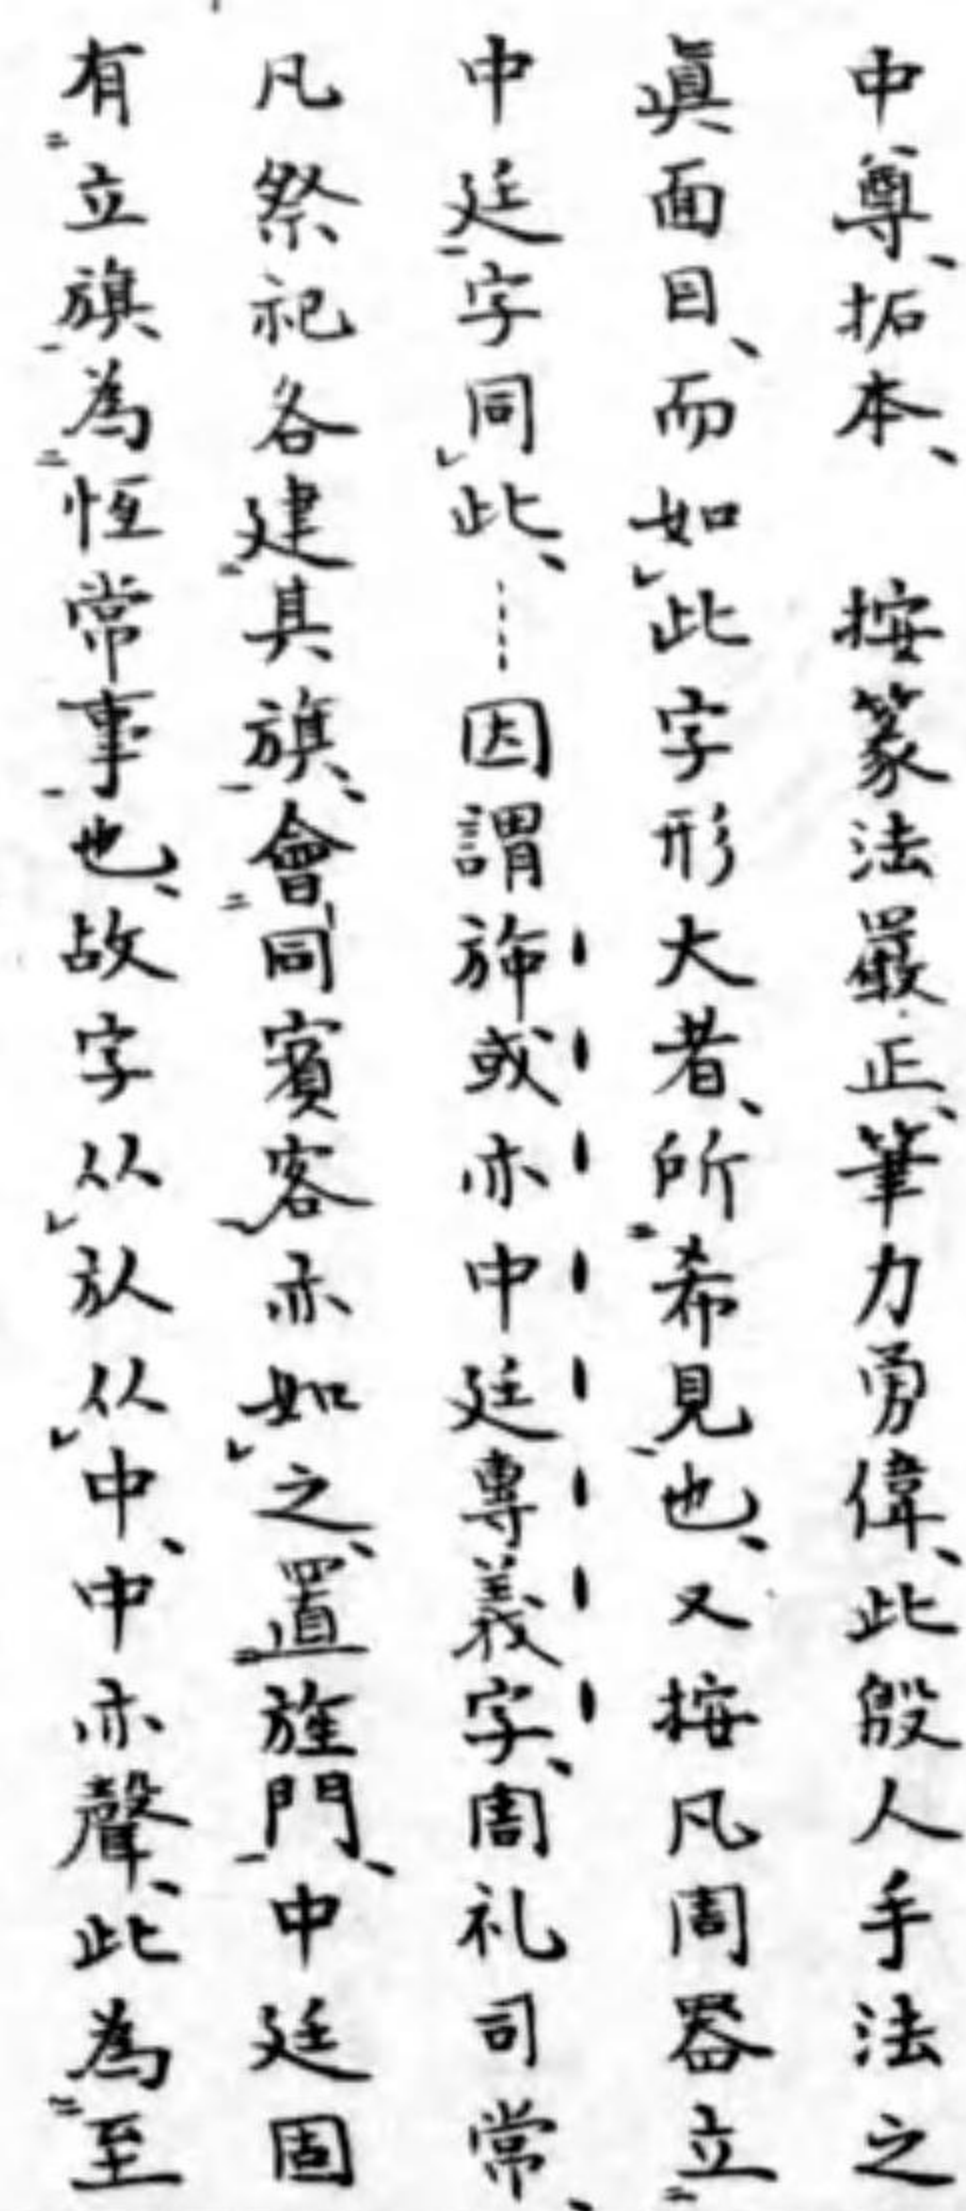 中尊、拓本、　按篆法嚴正、筆力勇偉、此殷人手法之
眞面目、而如レ此字形大者、所二希見一也、又按凡周器立二
中廷一字同レ此、……因謂㫋或亦中廷專義字、周礼司常、
凡祭祀各建二其旗一、會二同賓客一亦如レ之、置二旌門一、中廷固
有二立旗一為二恆常事一也、故字从レ㫃从レ中、中亦聲、此為二至